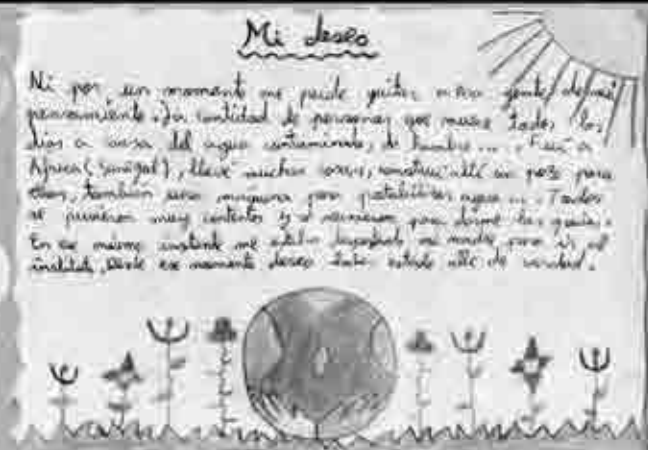 Mi deseo
Ni por un momento me pude quitar a esa gente de mi
pensamiento. La cantidad de personas que muere todos los
días a causa del agua contaminada, de hambre ... Fui a
Africa (Senegal), llevé muchas cosas, construí allí un pozo para
ellos, también una maquina para potabilizar agua ... Todos
se pusieron muy contentos y se reunieron para darme las gracias.
En ese mismo instante me estaba despertando mi madre para ir al
instituto, desde ese momento deseo haber estado allí de verdad.